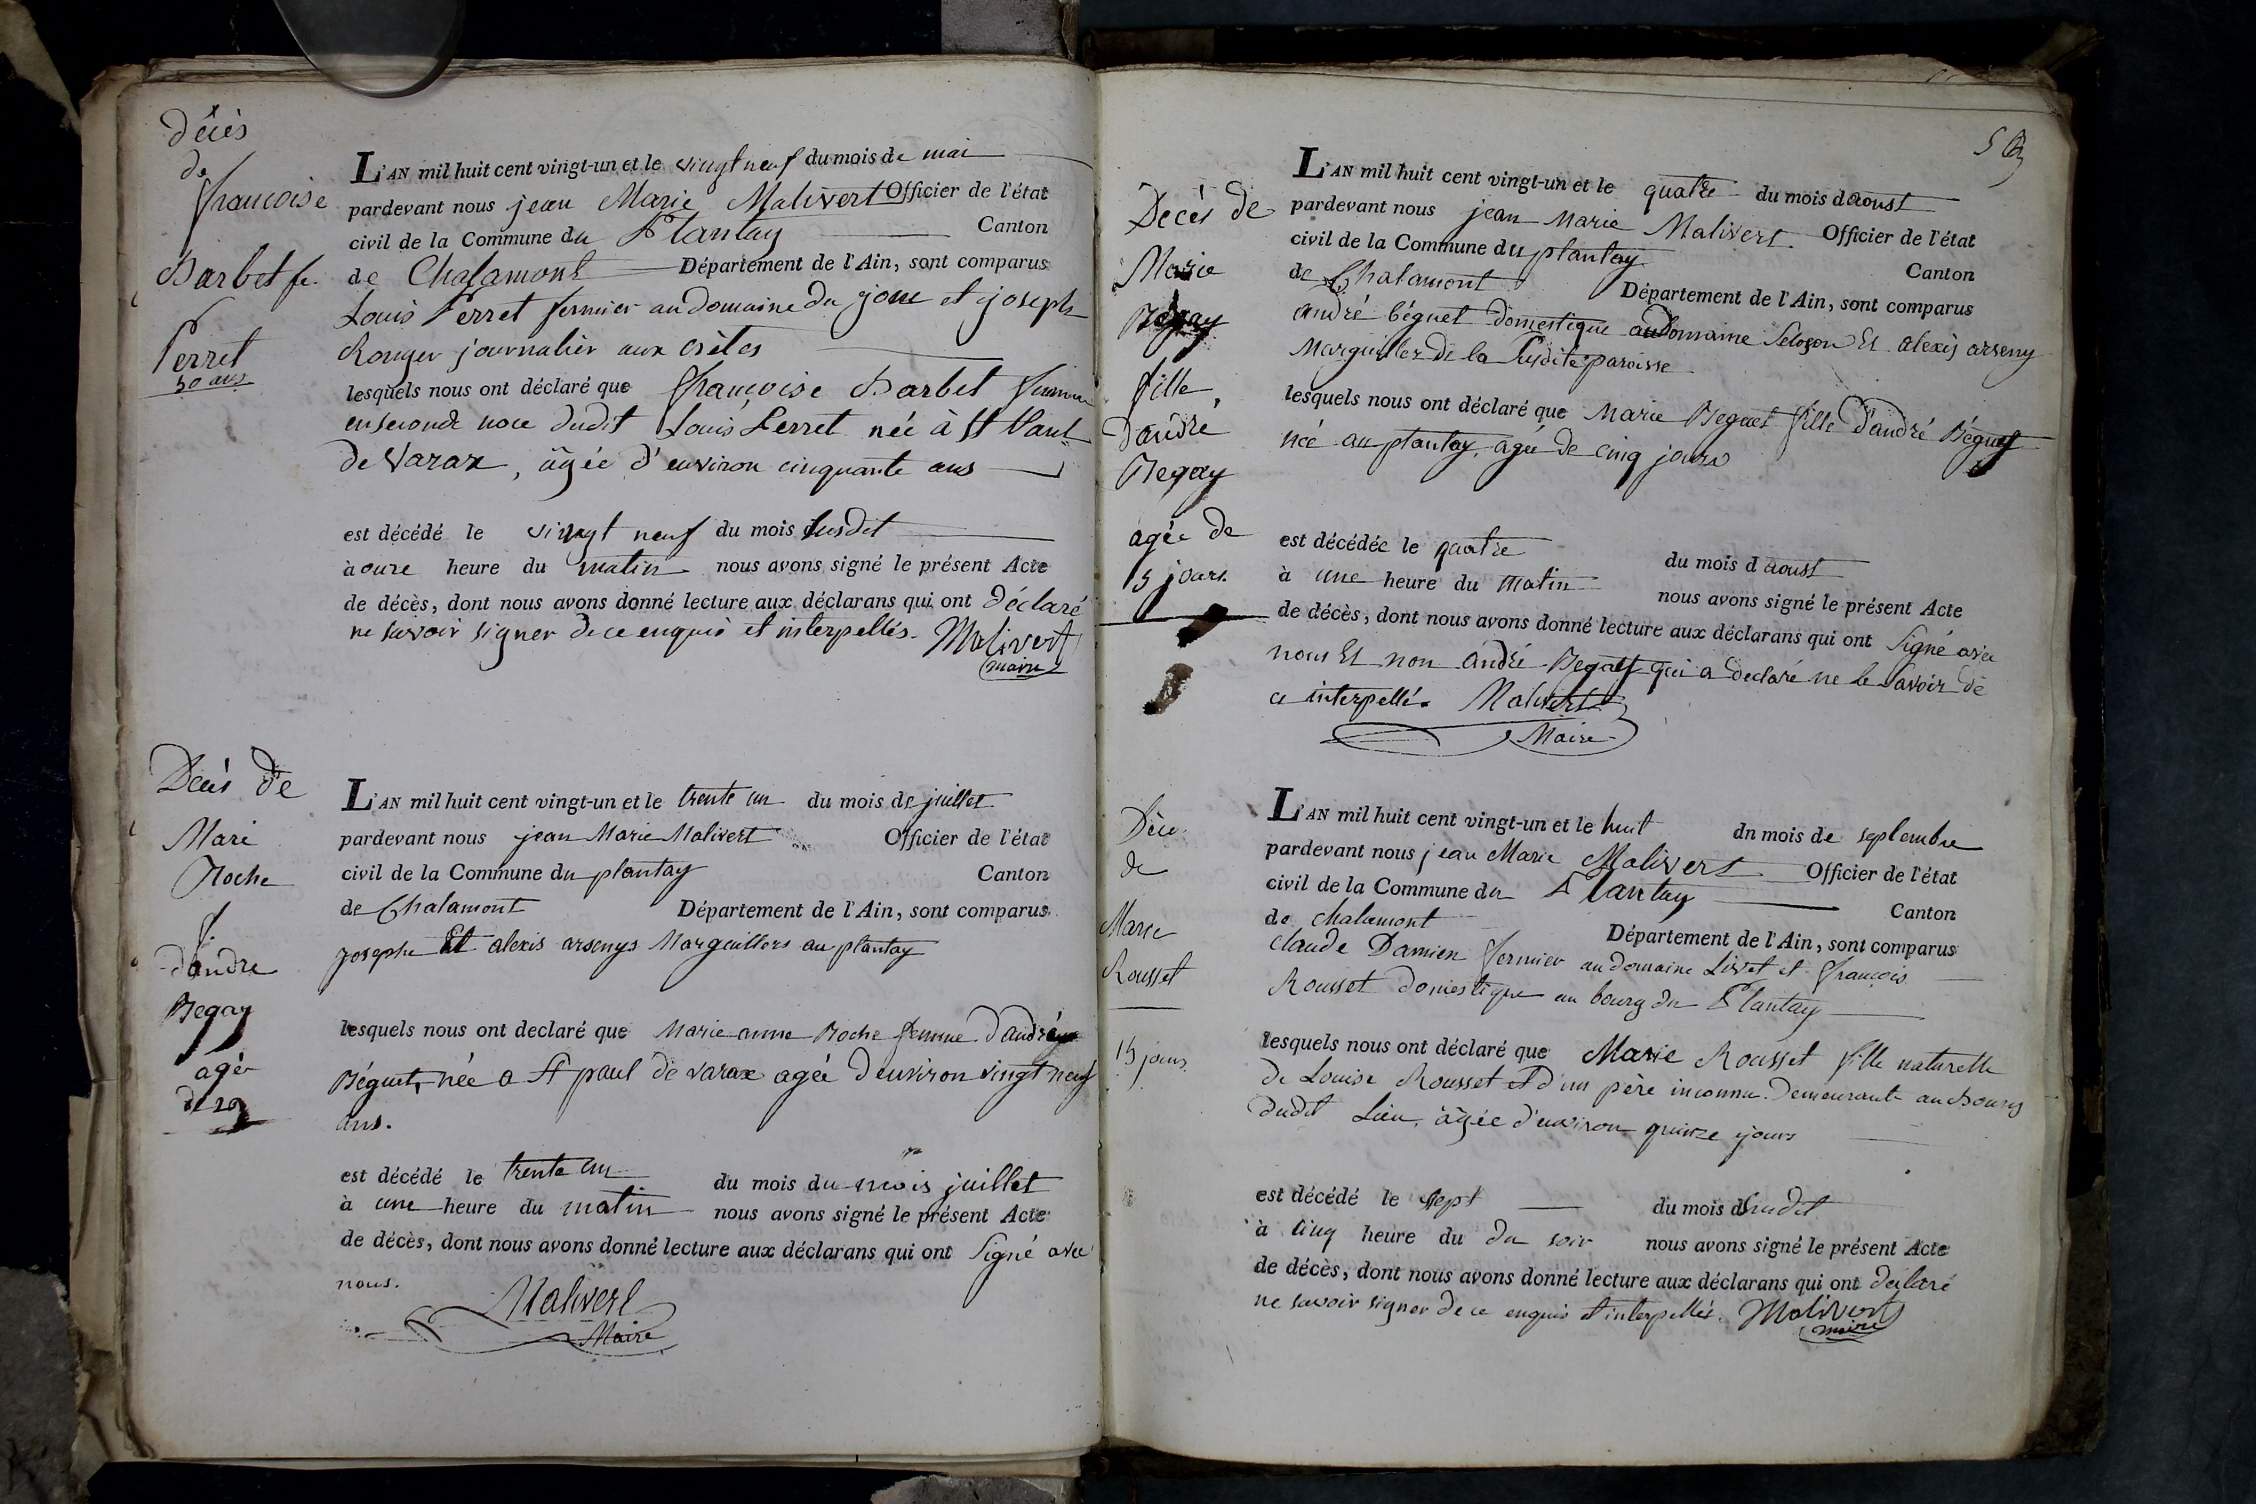 décès
de
francoise
Barbet fe.
Perret
50 ans
L'AN mil huit cent vingt-un et le vingt neuf du mois de mai
pardevant nous jean Marie Malivert Officier de l'état
civil de la Commune du Plantay Canton
de Chalamont Département de l'Ain, sont comparus
Louis Perret fermier au domaine du et joseph
Rouger journalier aux
lesquels nous ont déclaré que francoise Barbet femme
en seconde noce dudit Louis Perret née à St Paul
de Varax, âgée d'environ cinquante ans
est décédé le vingt neuf du mois susdit
à onze heure du matin nous avons signé le présent Acte
de décès, dont nous avons donné lecture aux déclarans qui ont déclaré
ne savoir signer de ce enquis et interpellés. Malivert
maire
Decès de
Mari
Roche
f.
d'andre
Begay
agée
de 29
L'AN mil huit cent vingt-un et le trente un du mois de juillet
pardevant nous jean Marie Malivert Officier de l'état
civil de la Commune du plantay Canton
de Chalamont Département de l'Ain, sont comparus
josephe Et alexis arsenys Marguilliers au plantay
lesquels nous ont declaré que Marie anne Roche femme d'andré
Béguet, née a St paul de varax agée d'environ vingt neuf
ans.
est décédé le trente un du mois du mois juillet
à une heure du matin nous avons signé le présent Acte
de décès, dont nous avons donné lecture aux déclarans qui ont signé avec
nous.
Malivert
Maire
Decès de
Marie
Begay
fille
d'andré
Begay
agée de
5 jours.
L'AN mil huit cent vingt-un et le quatre du mois d aoust
pardevant nous jean Marie Malivert Officier de l'état
civil de la Commune du plantay Canton
de Chalamont Département de l'Ain, sont comparus
andré béguet domestique au domaine Et alexis arseny
Marguiller de la susdite paroisse
lesquels nous ont déclaré que Marie Beguet fille d'andré Béguet
née au plantay, agée de cinq jours
est décédée le quatre du mois d aoust
à une heure du matin nous avons signé le présent Acte
de décès, dont nous avons donné lecture aux déclarans qui ont signé avec
nous Et non andré qui a declaré ne le savoir de
ce interpellé. Malivert
Maire
Déce
de
Marie
Rousset
15 jours
L'AN mil huit cent vingt-un et le huit dn mois de septembre
pardevant nous jean Marie Malivert Officier de l'état
civil de la Commune du Plantay Canton
de chalamont Département de l'Ain, sont comparus
Claude Damien fermier au domaine Livet et françois
Rousset domestique au bourg du Plantay
lesquels nous ont déclaré que Marie Rousset fille naturelle
de Louise Rousset et d'un père inconnu. Demeurante au Bourg
dudit Lieu, âgée d'environ quinze jours
est décédé le sept du mois dsudit
à cinq heure du du soir nous avons signé le présent Acte
de décès, dont nous avons donné lecture aux déclarans qui ont déclaré
ne savoir signer de ce enquis et interpellés. Malivert
maire